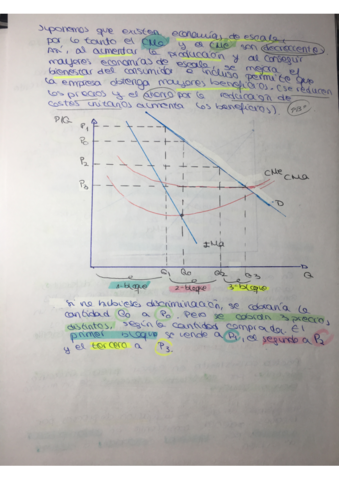 Suponemos que existen economías de escala,
por lo tanto el CMe y el CMa son decrecientes.
Así, al aumentar la producción y al conseguir
mayores economías de escala se mejora el
bienestar del consumidor e incluso permite que
la empresa obtenga mayores beneficios. (Se reducen
los precios y el ahorro por la reducción de
costes unitarios aumenta los beneficios)
P/Q
P1
P0
P2
P3
CMe
CMa
D
IMa
Q1 Q0 Q2 Q3 Q
1-bloque 2-bloque 3-bloque
Si no hubiera discriminación, se cobraría la
cantidad Q0 a P0. Pero se cobran 3 precios
distintos, según la cantidad comprada. El
primer bloque se vende a P1, el segundo a P2
y el tercero a P3.